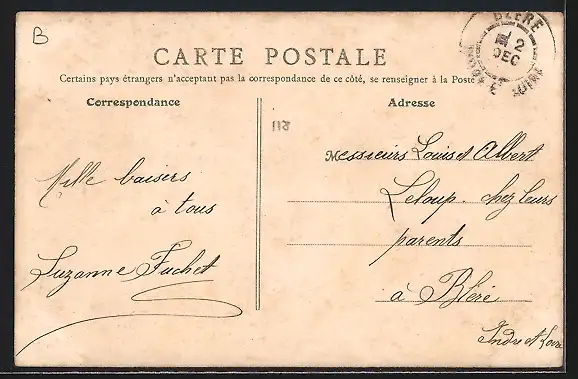 B
CARTE POSTALE
Certains pays étrangers n'acceptant pas la correspondance de ce côté, se renseigner à la Poste
Correspondance
Adresse
BLÉRÉ
2
DEC
INDRE ET LOIRE
118
Messieurs Louis et Albert
Leloup. chez leurs
parents
à Bléré
Indre et Loire
Mille baisers
à tous
Suzanne Fuchet